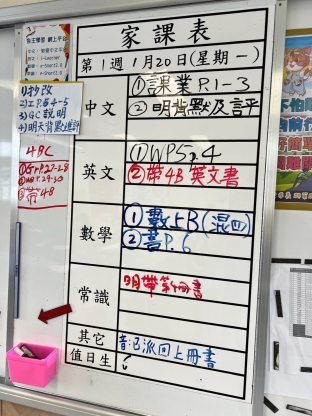 家課表
第1週1月20日(星期一)
中文
①課業P.1-3
②明背默及評
英文
①WP5,4
②帶4B英文書
數學
①數上B(混四)
②音P.6
常識
明帶第4冊書
其它
音:已派回上冊書
值日生
自主學習 網上平台
1)抄改
2)工P.64-5
3)GC說明
4)明天背默進評
4BC
①GrP.27-28
②P.29-30
③帶4B